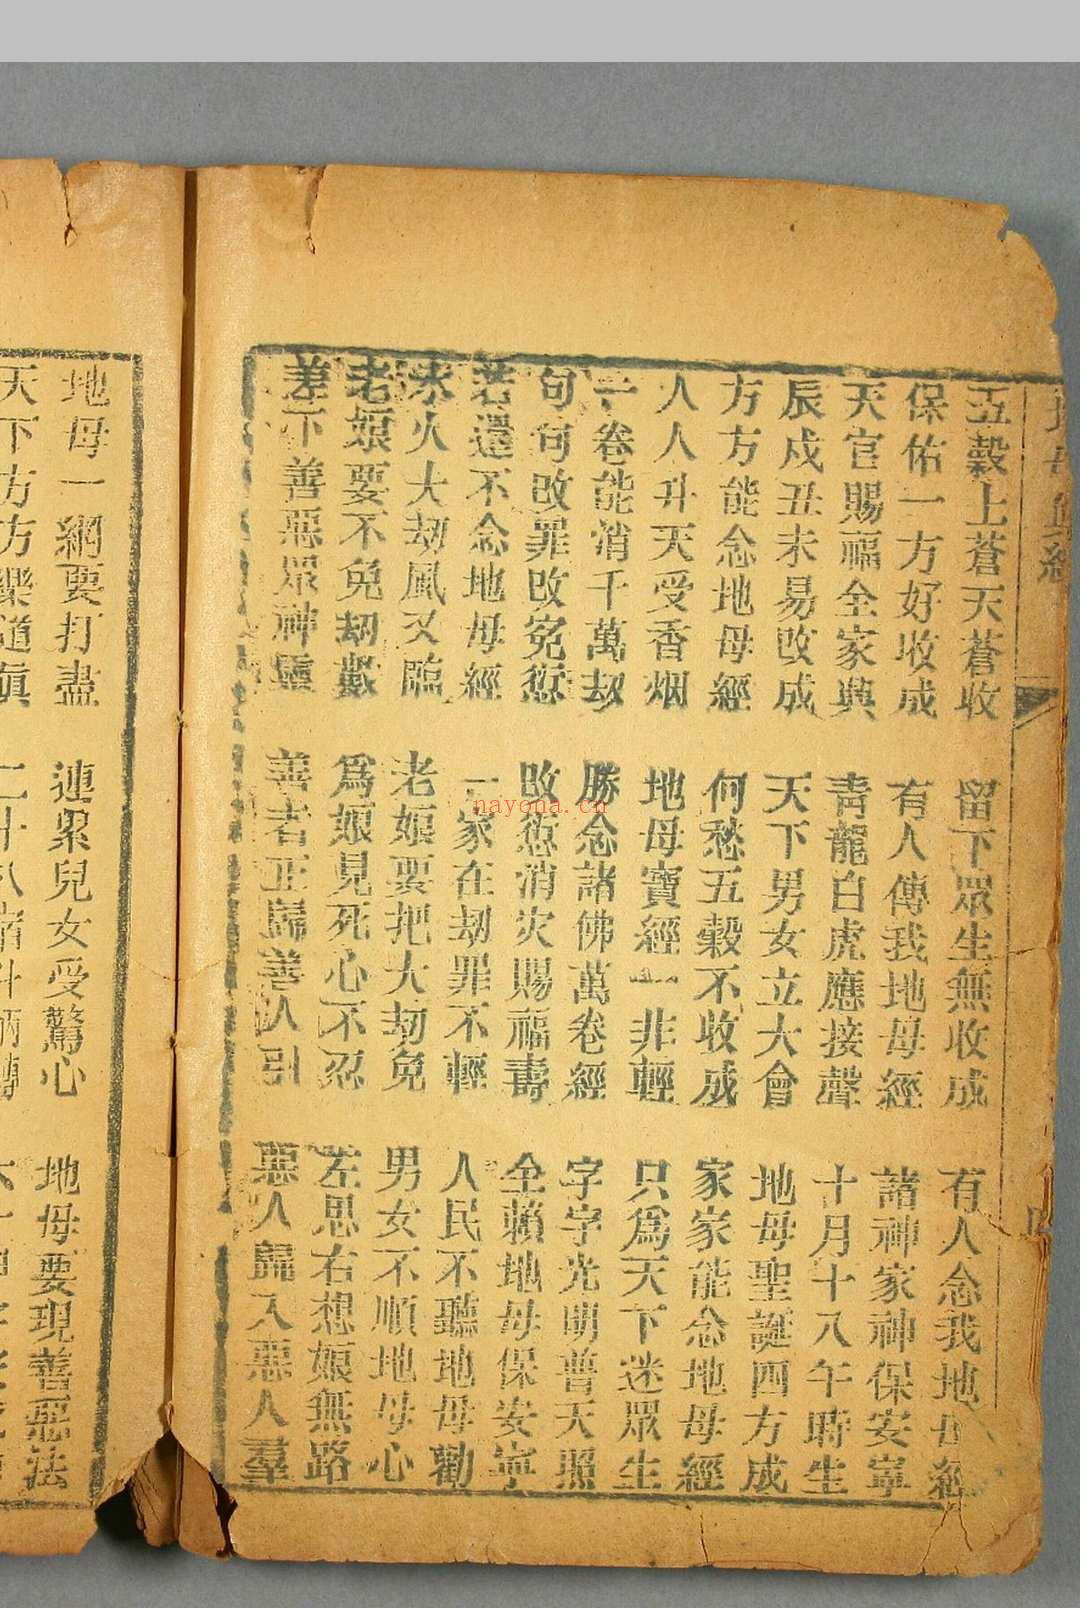 地母真經
五穀上蒼天蒼收 留下眾生無收成 有人念我地母經
保佑一方好收成 有人傳我地母經 諸神家神保安寧
天官賜福全家興 青龍白虎應接聲 十月十八午時生
辰戍丑未易改成 天下男女立大會 地母聖誕四方成
方方能念地母經 何愁五穀不收成 家家能念地母經
人人升天受香烟 地母寶經一非輕 只為天下迷眾生
一卷能消千萬刼 勝念諸佛萬卷經 字字光明普天照
句句改罪改冤愆 改愆消灾賜福壽 全賴地母保安寧
若還不念地母經 一家在刼罪不輕 人民不聽地母勸
水火大刼風又臨 老娘要把大刼免 男女不順地母心
老娘要不免刼數 為娘見死心不忍 左思右想娘無路
差下善惡眾神靈 善者正歸善人引 惡人歸入惡人羣
地母一網要打盡 連累兒女受驚心 地母要現善惡法
天下方方樂道真 二十八宿斗柄轉
nayona.cn